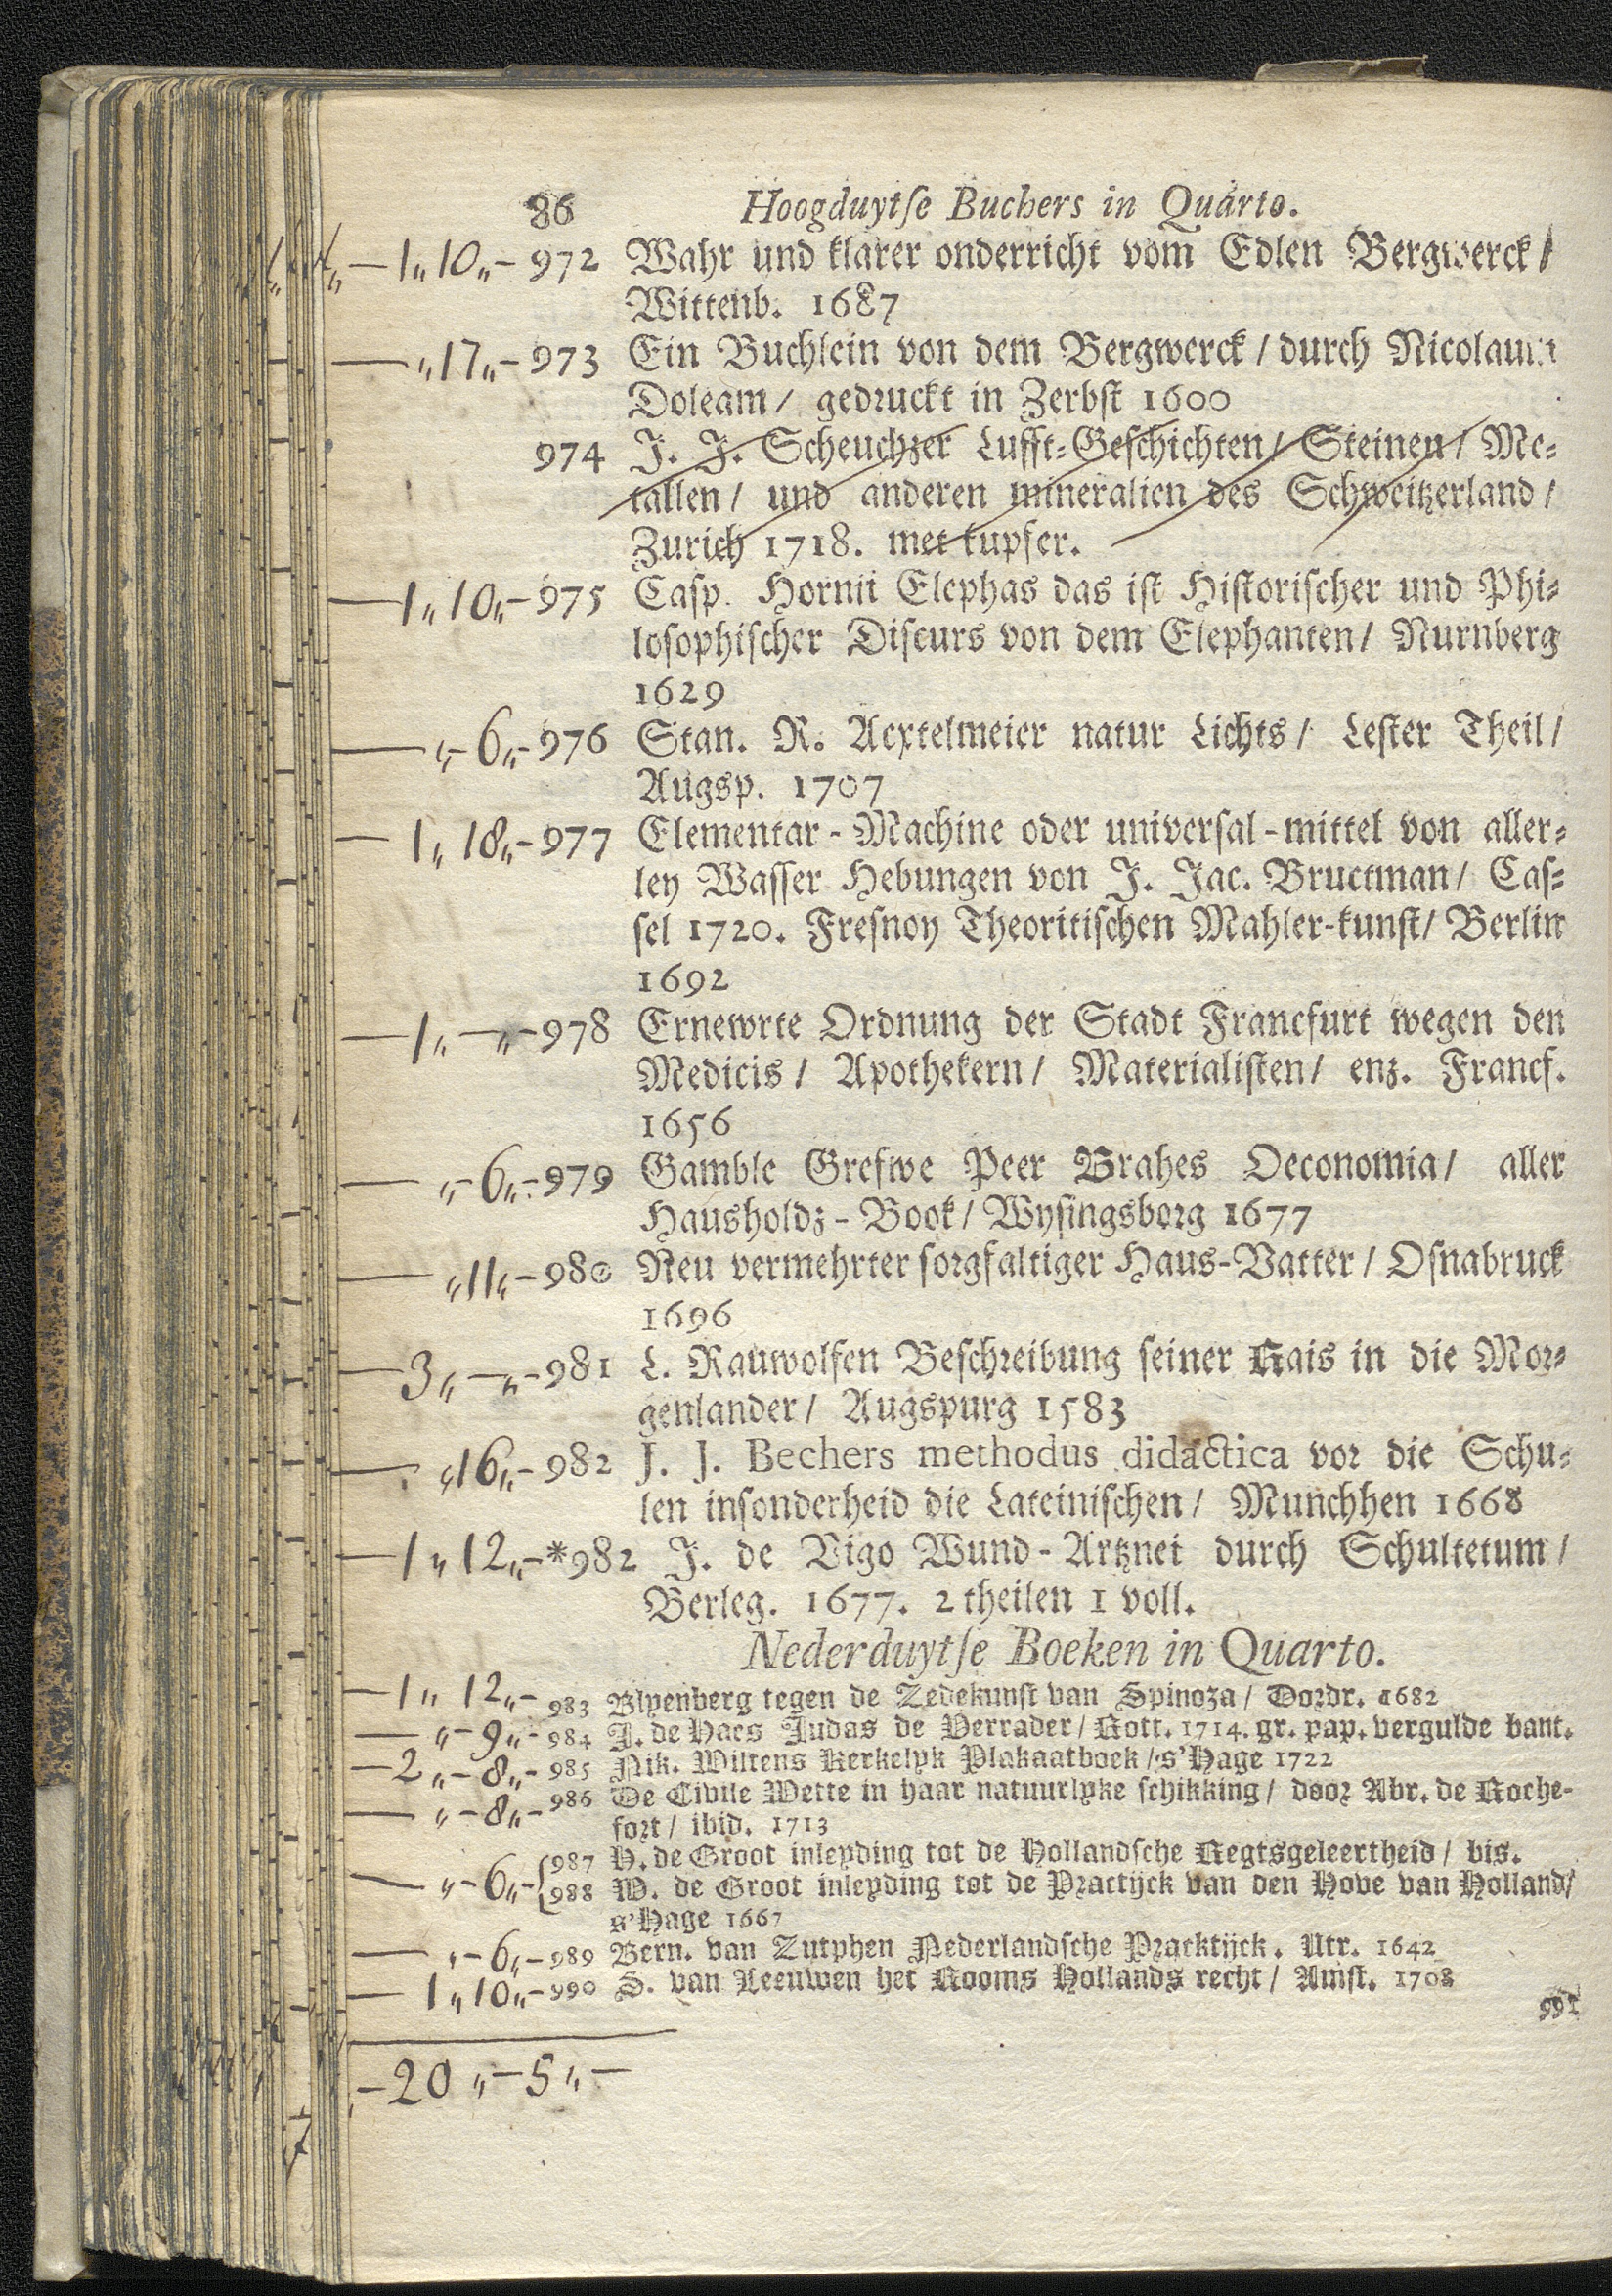 86 Hoogduytſe Buchers in Quarto.
— 1„ 10„ - 972 Wahr und klarer onderricht vom Edlen Bergwerck /
Wittenb. 1687
— „ 17„ - 973 Ein Buchlein von dem Bergwerck / durch Nicolaum
Doleam / gedruckt in Zerbst 1600
974 J. J. Scheuchzer Lufft-Geschichten / Steinen / Me-
tallen / und anderen mineralien des Schweitzerland /
Zurich 1718. met kupfer.
— 1„ 10„ - 975 Casp. Hornii Elephas das ist Historischer und Phi-
losophischer Discurs von dem Elephanten / Nurnberg
1629
— „ - 6„ - 976 Stan. R. Acxtelmeier natur Lichts / Lester Theil /
Augsp. 1707
— 1„ 18„ - 977 Elementar - Machine oder universal - mittel von aller-
ley Wasser Hebungen von J. Jac. Bructman / Cas-
sel 1720. Fresnoy Theoritischen Mahler-kunst / Berlin
1692
— 1„ — „ - 978 Ernewrte Ordnung der Stadt Francfurt wegen den
Medicis / Apothekern / Materialisten / enz. Francf.
1656
— „ - 6„ - 979 Gamble Grefwe Peer Brahes Oeconomia / aller
Hausholdz - Book / Wysingsborg 1677
— „ 11„ - 980 Neu vermehrter sorgfaltiger Haus-Vatter / Osnabruck
1696
— 3„ — „ - 981 L. Rauwolfen Beschreibung seiner Rais in die Mor-
genlander / Augspurg 1583
— „ 16„ - 982 J. J. Bechers methodus didactica vor die Schu-
len insonderheid die Lateinischen / Munchhen 1668
— 1„ 12„ - *982 J. de Vigo Wund - Artznei durch Schultetum /
Berleg. 1677. 2 theilen 1 voll.
Nederduytſe Boeken in Quarto.
— 1„ 12„ - 983 Blyenberg tegen de Zedekunst van Spinoza / Dordr. 1682
— „ - 9„ - 984 J. de Haes Judas de Verrader / Rott. 1714. gr. pap. vergulde bant.
— 2„ - 8„ - 985 Nik. Wiltens Kerkelyk Plakaatboek / s'Hage 1722
— „ - 8„ - 986 De Civile Wette in haar natuurlyke schikking / door Abr. de Roche-
fort / ibid. 1713
987 H. de Groot inleyding tot de Hollandsche Regtsgeleertheid / bis.
— „ - 6„ - { 988 W. de Groot inleyding tot de Practijck van den Hove van Holland /
s'Hage 1667
— „ - 6„ - 989 Bern. van Zutphen Nederlandsche Pracktijck. Utr. 1642
— 1„ 10„ - 990 S. van Leeuwen het Rooms Hollands recht / Amst. 1708
991
— 20„ - 5„ -